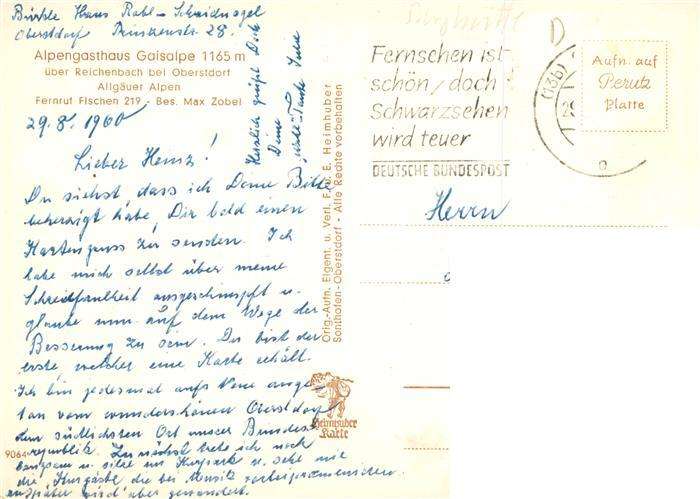 Hans Rabl-Schneidnagel
Oberstdorf Prinzenstr 28.
Alpengasthaus Gaisalpe 1165 m
über Reichenbach bei Oberstdorf
Allgäuer Alpen
Fernruf Fischen 219 - Bes. Max Zobel
29.8.1960
Lieber Heinz!
Du siehst, dass ich Deine Bitte
beherzigt habe, Dir bald einen
Kartengruss zu senden. Ich
habe mich selbst über meine
Schreibfaulheit ausgeschimpft u.
glaube nun auf dem Wege der
Besserung zu sein. Du bist der
erste, welcher eine Karte erhält.
Ich bin jedesmal aufs Neue ange-
tan vom wunderschönen Oberstdorf
dem südlichsten Ort unser Bundes-
republik. Zunächst trete ich noch
langsam u. sitze im Kurpark u. sehe mir
die Kurgäste, die bei Musik vorbeipromenieren
später wird aber gewandert.
Herzlich grüßt Dich
Deine
Tante
9064
Orig.-Aufn. Eigent. u. Verl. F. u. E. Heimhuber
Sonthofen-Oberstdorf - Alle Rechte vorbehalten
Heimhuber
Karte
Fernsehen ist
schön, doch
Schwarzsehen
wird teuer
DEUTSCHE BUNDESPOST
(13b)
Aufn. auf
Perutz
Platte
Herrn